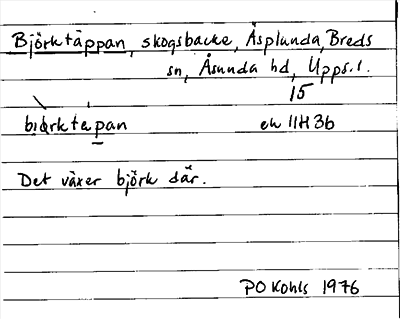 Björktäppan, skogsbacke, Åsplunda, Breds
sn, Åsunda hd, Upps. l.
15
biørktepan
ek 11H 3b
Det växer björk där.
PO Kohls 1976